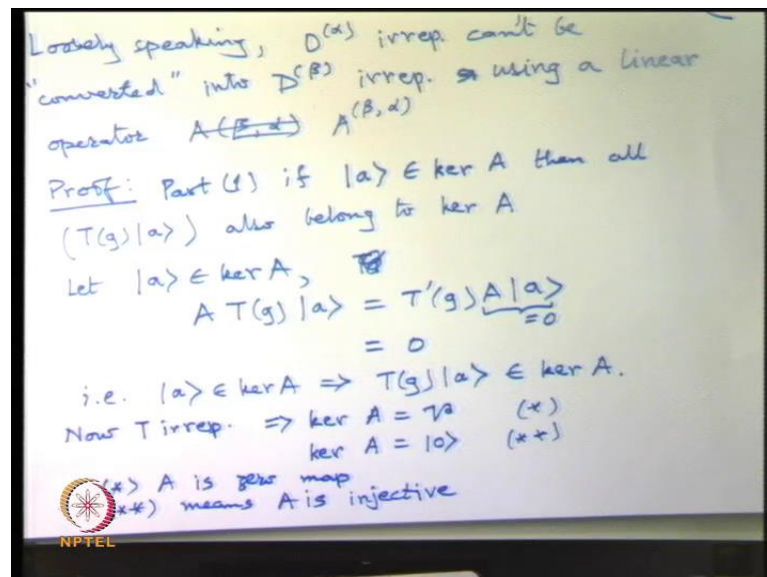 Loosely speaking, D^(α) irrep. can't be
"converted" into D^(β) irrep. using a linear
operator A(β,α) A^(β,α)
Proof: Part (1) if |a> ∈ ker A then all
(T(g)|a>) also belong to ker A
Let |a> ∈ ker A,
A T(g)|a> = T'(g) A|a>
=0
= 0
i.e. |a> ∈ ker A => T(g)|a> ∈ ker A.
Now T irrep. => ker A = V (*)
ker A = |0> (**)
(*) A is zero map
(**) means A is injective
NPTEL